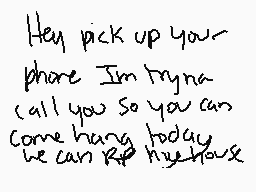 Hey pick up your
phone Im tryna
call you so you can
come hang today
we can